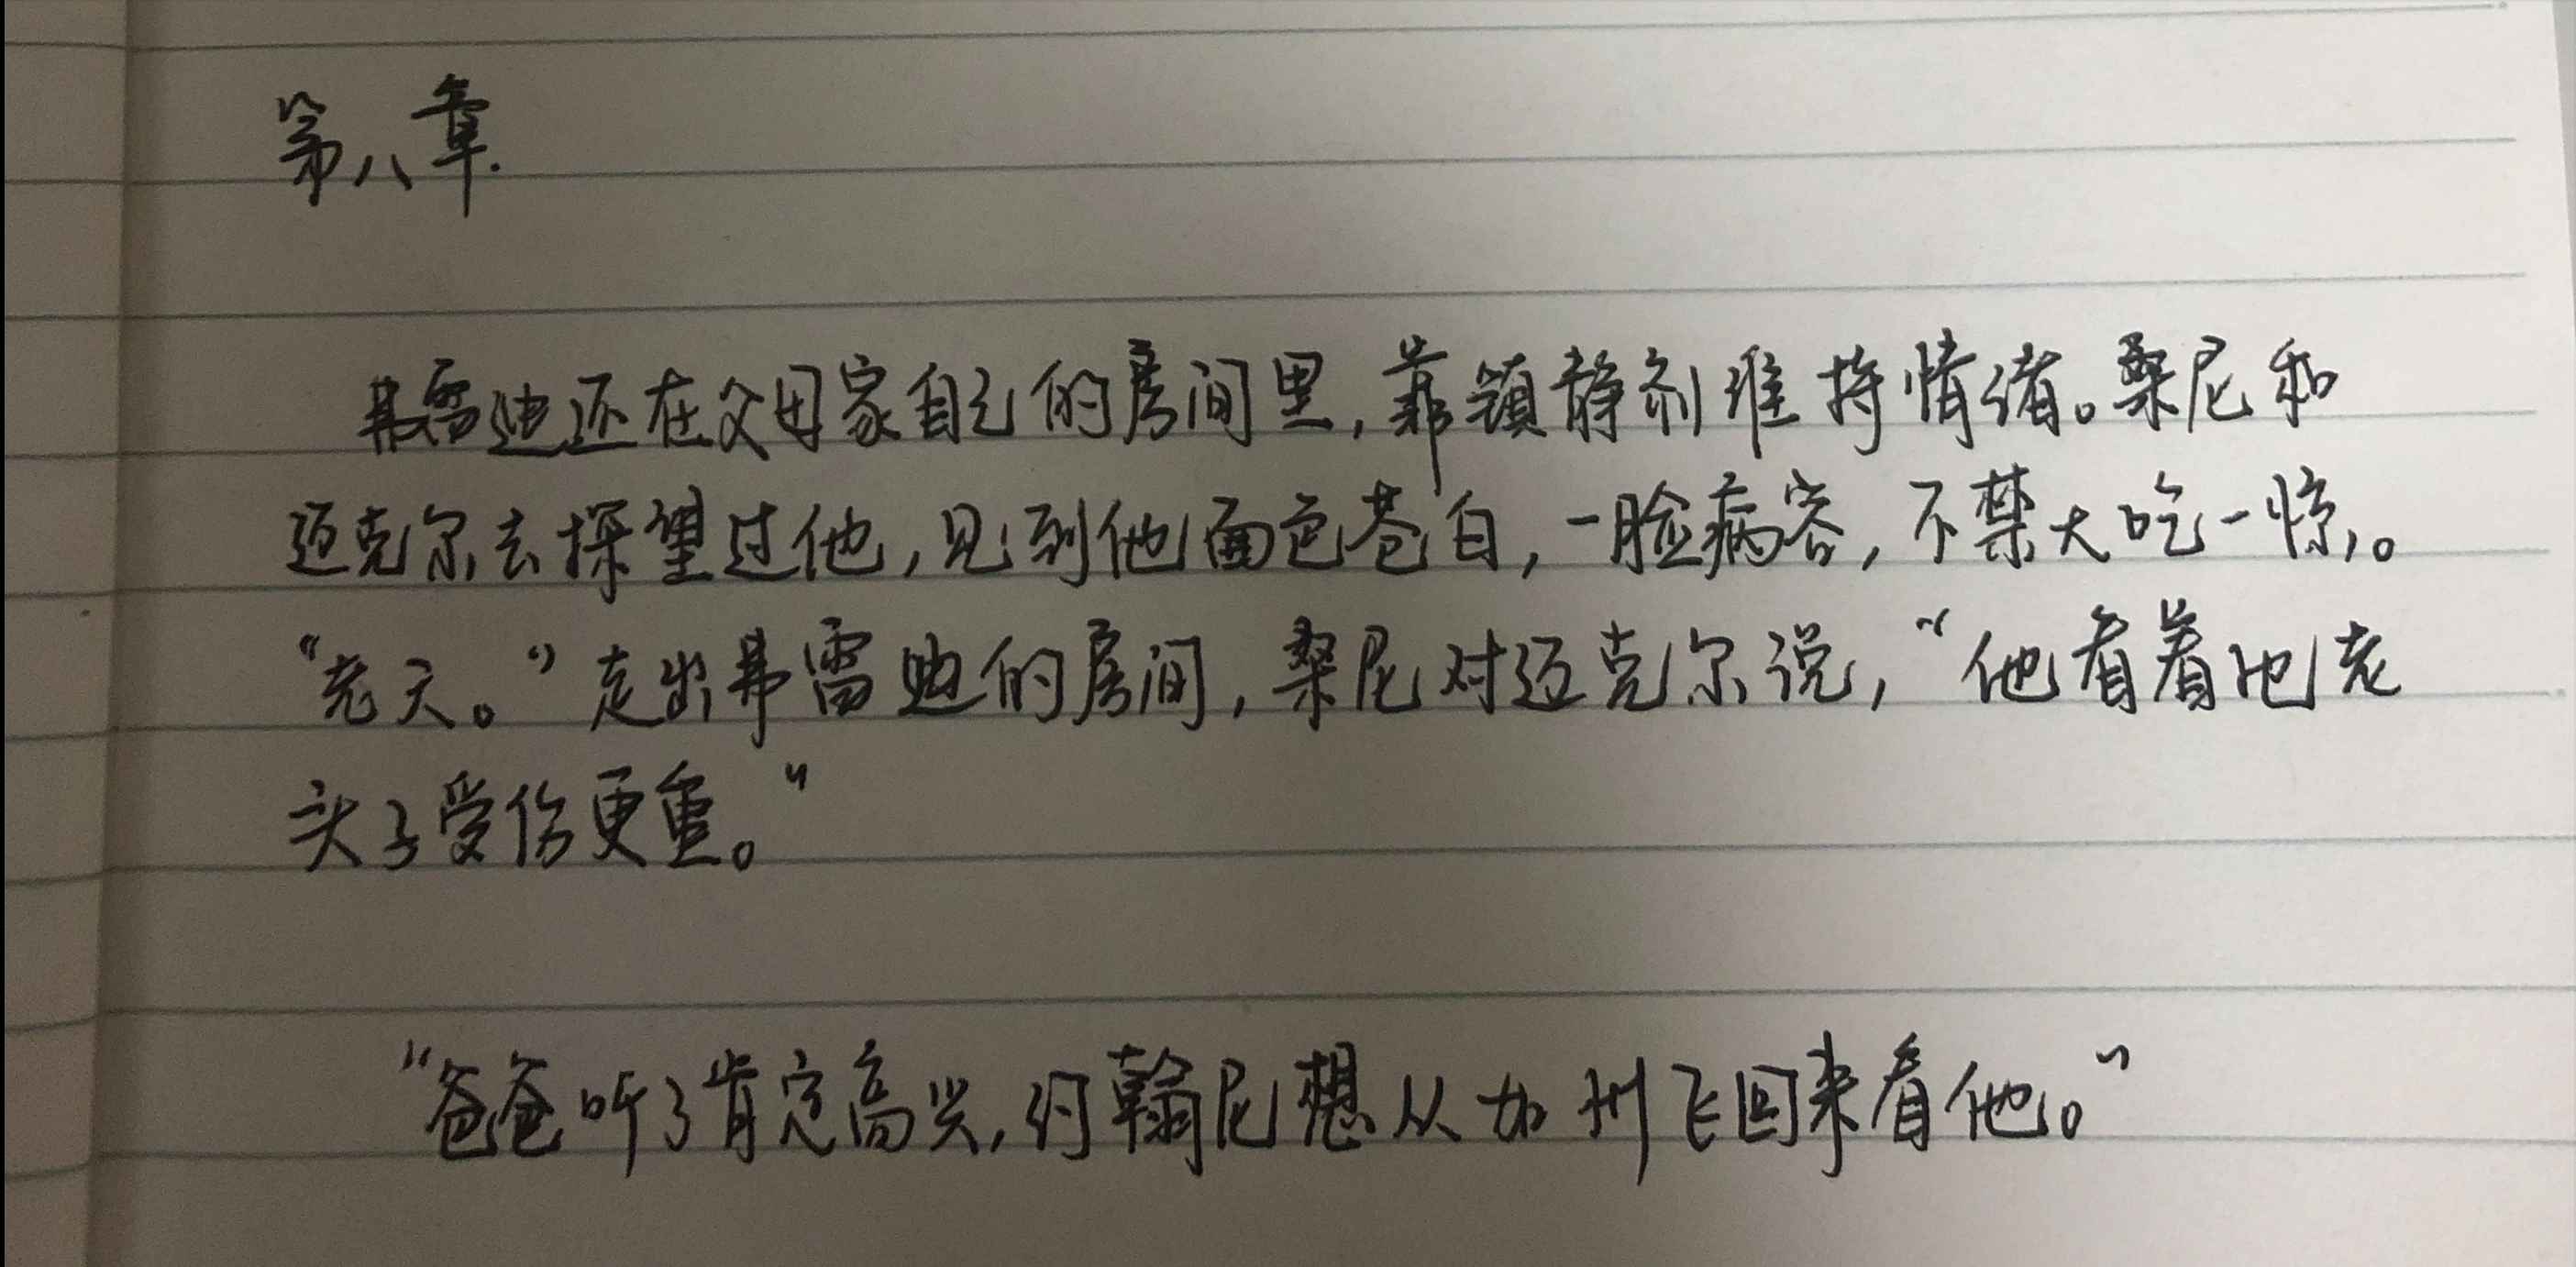 第八章.
弗雷迪还在父母家自己的房间里，靠镇静剂维持情绪。桑尼和
迈克尔去探望过他，见到他面色苍白，一脸病容，不禁大吃一惊。
“老天。”走出弗雷迪的房间，桑尼对迈克尔说，“他看着比老
头子受伤更重。”
“爸爸听了肯定高兴，约翰尼想从加州飞回来看他。”